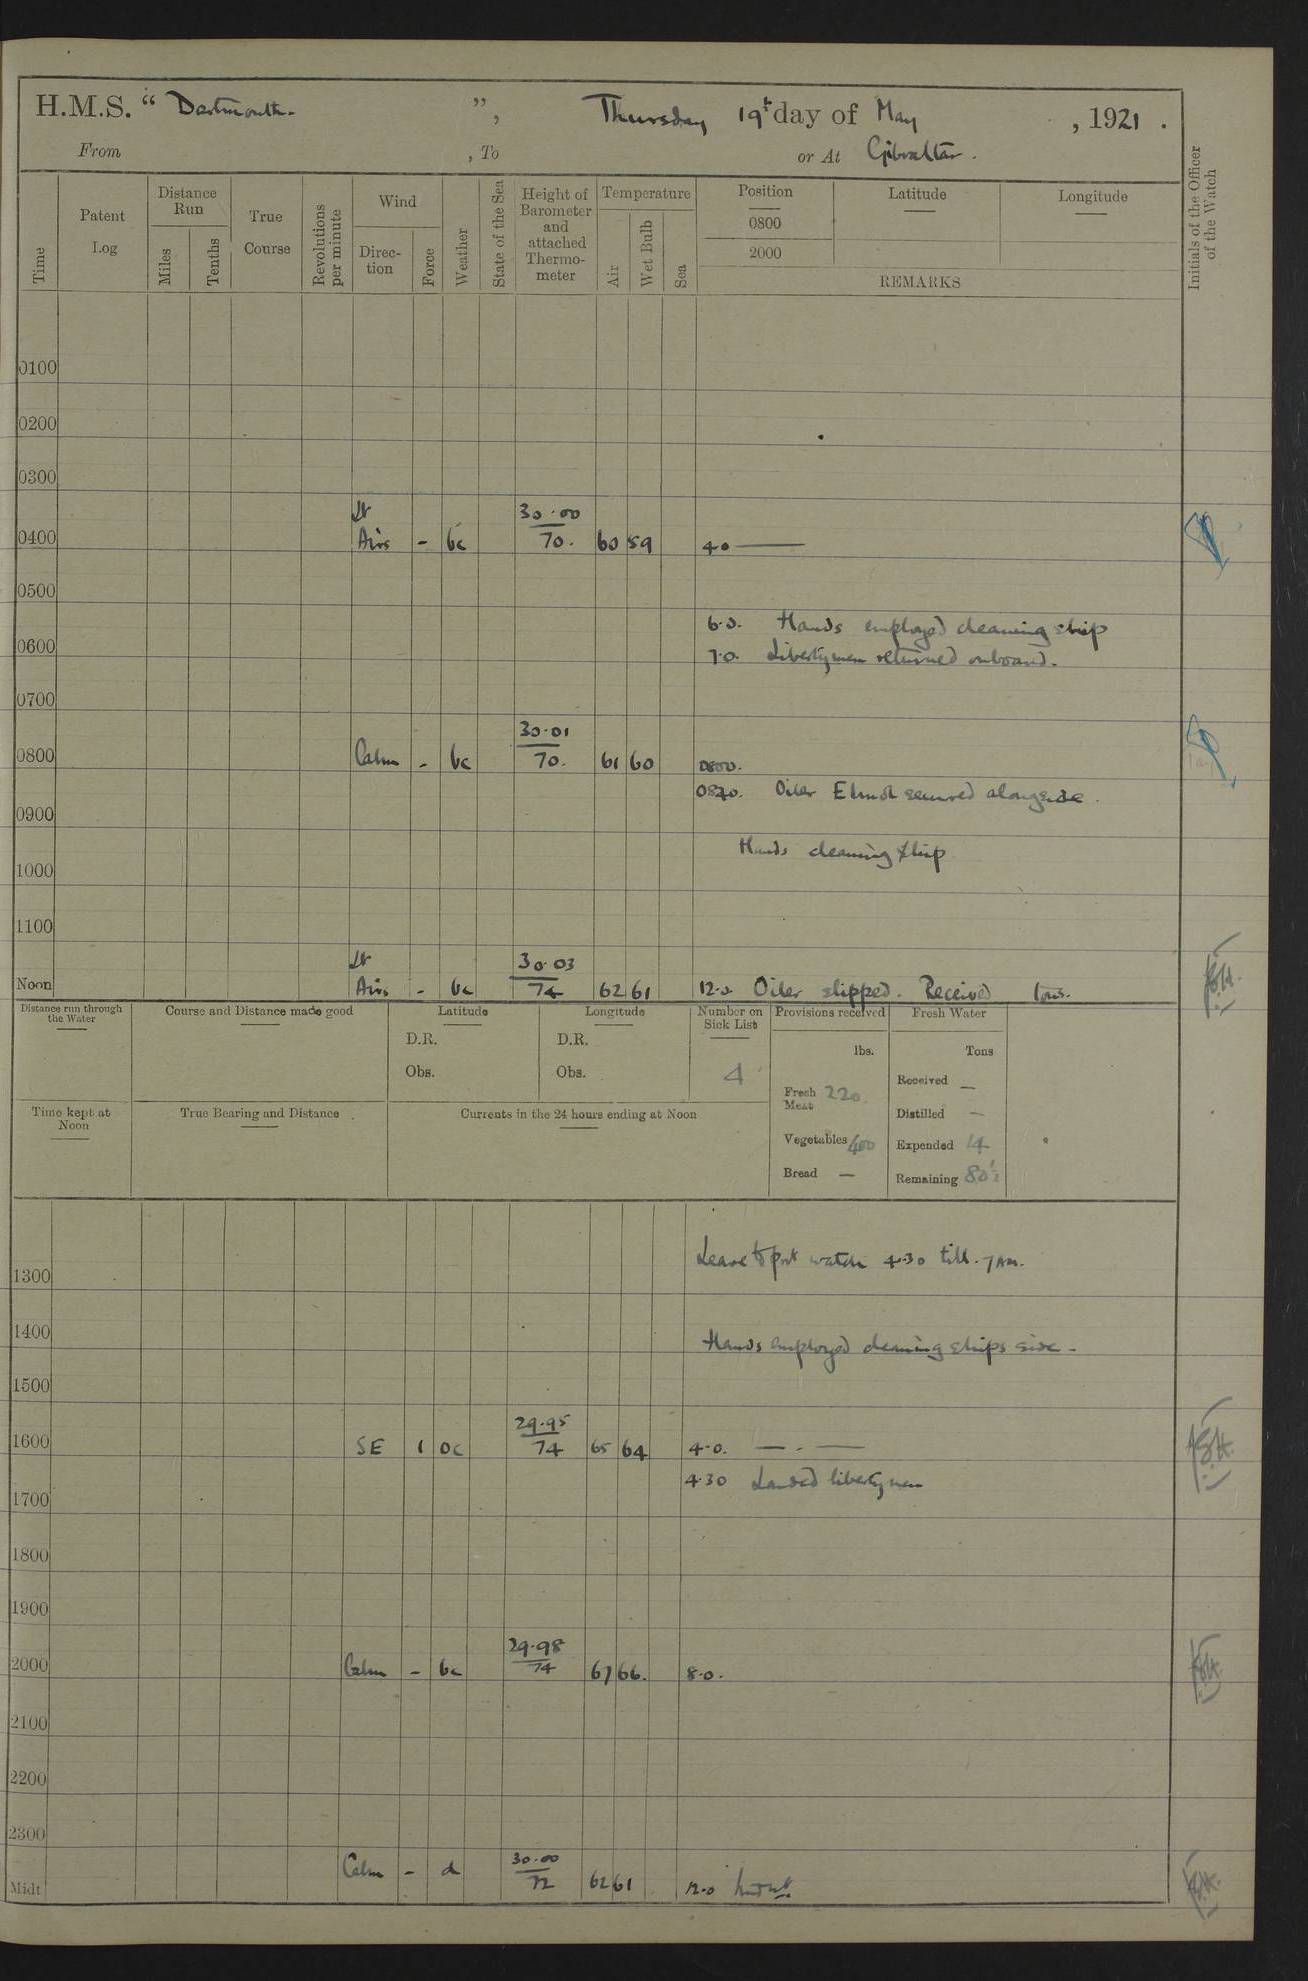 H.M.S. "Dartmouth.", Thursday 19th day of May, 1921.
From , To or At Gibraltar.
Time
Patent Log
Distance Run
Miles
Tenths
True Course
Revolutions per minute
Wind
Direction
Force
Weather
State of the Sea
Height of Barometer and attached Thermometer
Temperature
Air
Wet Bulb
Sea
Position
0800
2000
Latitude
Longitude
REMARKS
Initials of the Officer of the Watch
0100
0200
0300
Lt 30.00
0400 Airs - bc 70. 60 59 4.0 ———
0500
6.0. Hands employed cleaning ship
0600
7.0. Libertymen returned onboard.
0700
30.01
0800 Calm - bc 70. 61 60 0800.
Oiler secured alongside.
0900
Hands cleaning ship
1000
1100
Lt 30.03
Noon Airs - bc 74 62 61 12.0 Oiler slipped. Received tons.
Distance run through the Water
Course and Distance made good
Latitude
D.R.
Obs.
Longitude
D.R.
Obs.
Number on Sick List
4
Provisions received
lbs.
Fresh Meat 220.
Vegetables 400
Bread —
Fresh Water
Tons
Received —
Distilled —
Expended 14
Remaining 80½
Time kept at Noon
True Bearing and Distance
Currents in the 24 hours ending at Noon
Leave to port watch 4.30 till 7 AM.
1300
1400
Hands employed cleaning ships side -
1500
29.95
1600 SE 1 oc 74 65 64 4.0. — . —
4.30 Landed libertymen
1700
1800
1900
29.98
2000 Calm - bc 74 67 66. 8.0.
2100
2200
2300
30.00
Calm - 72 62 61
Midt 12.0